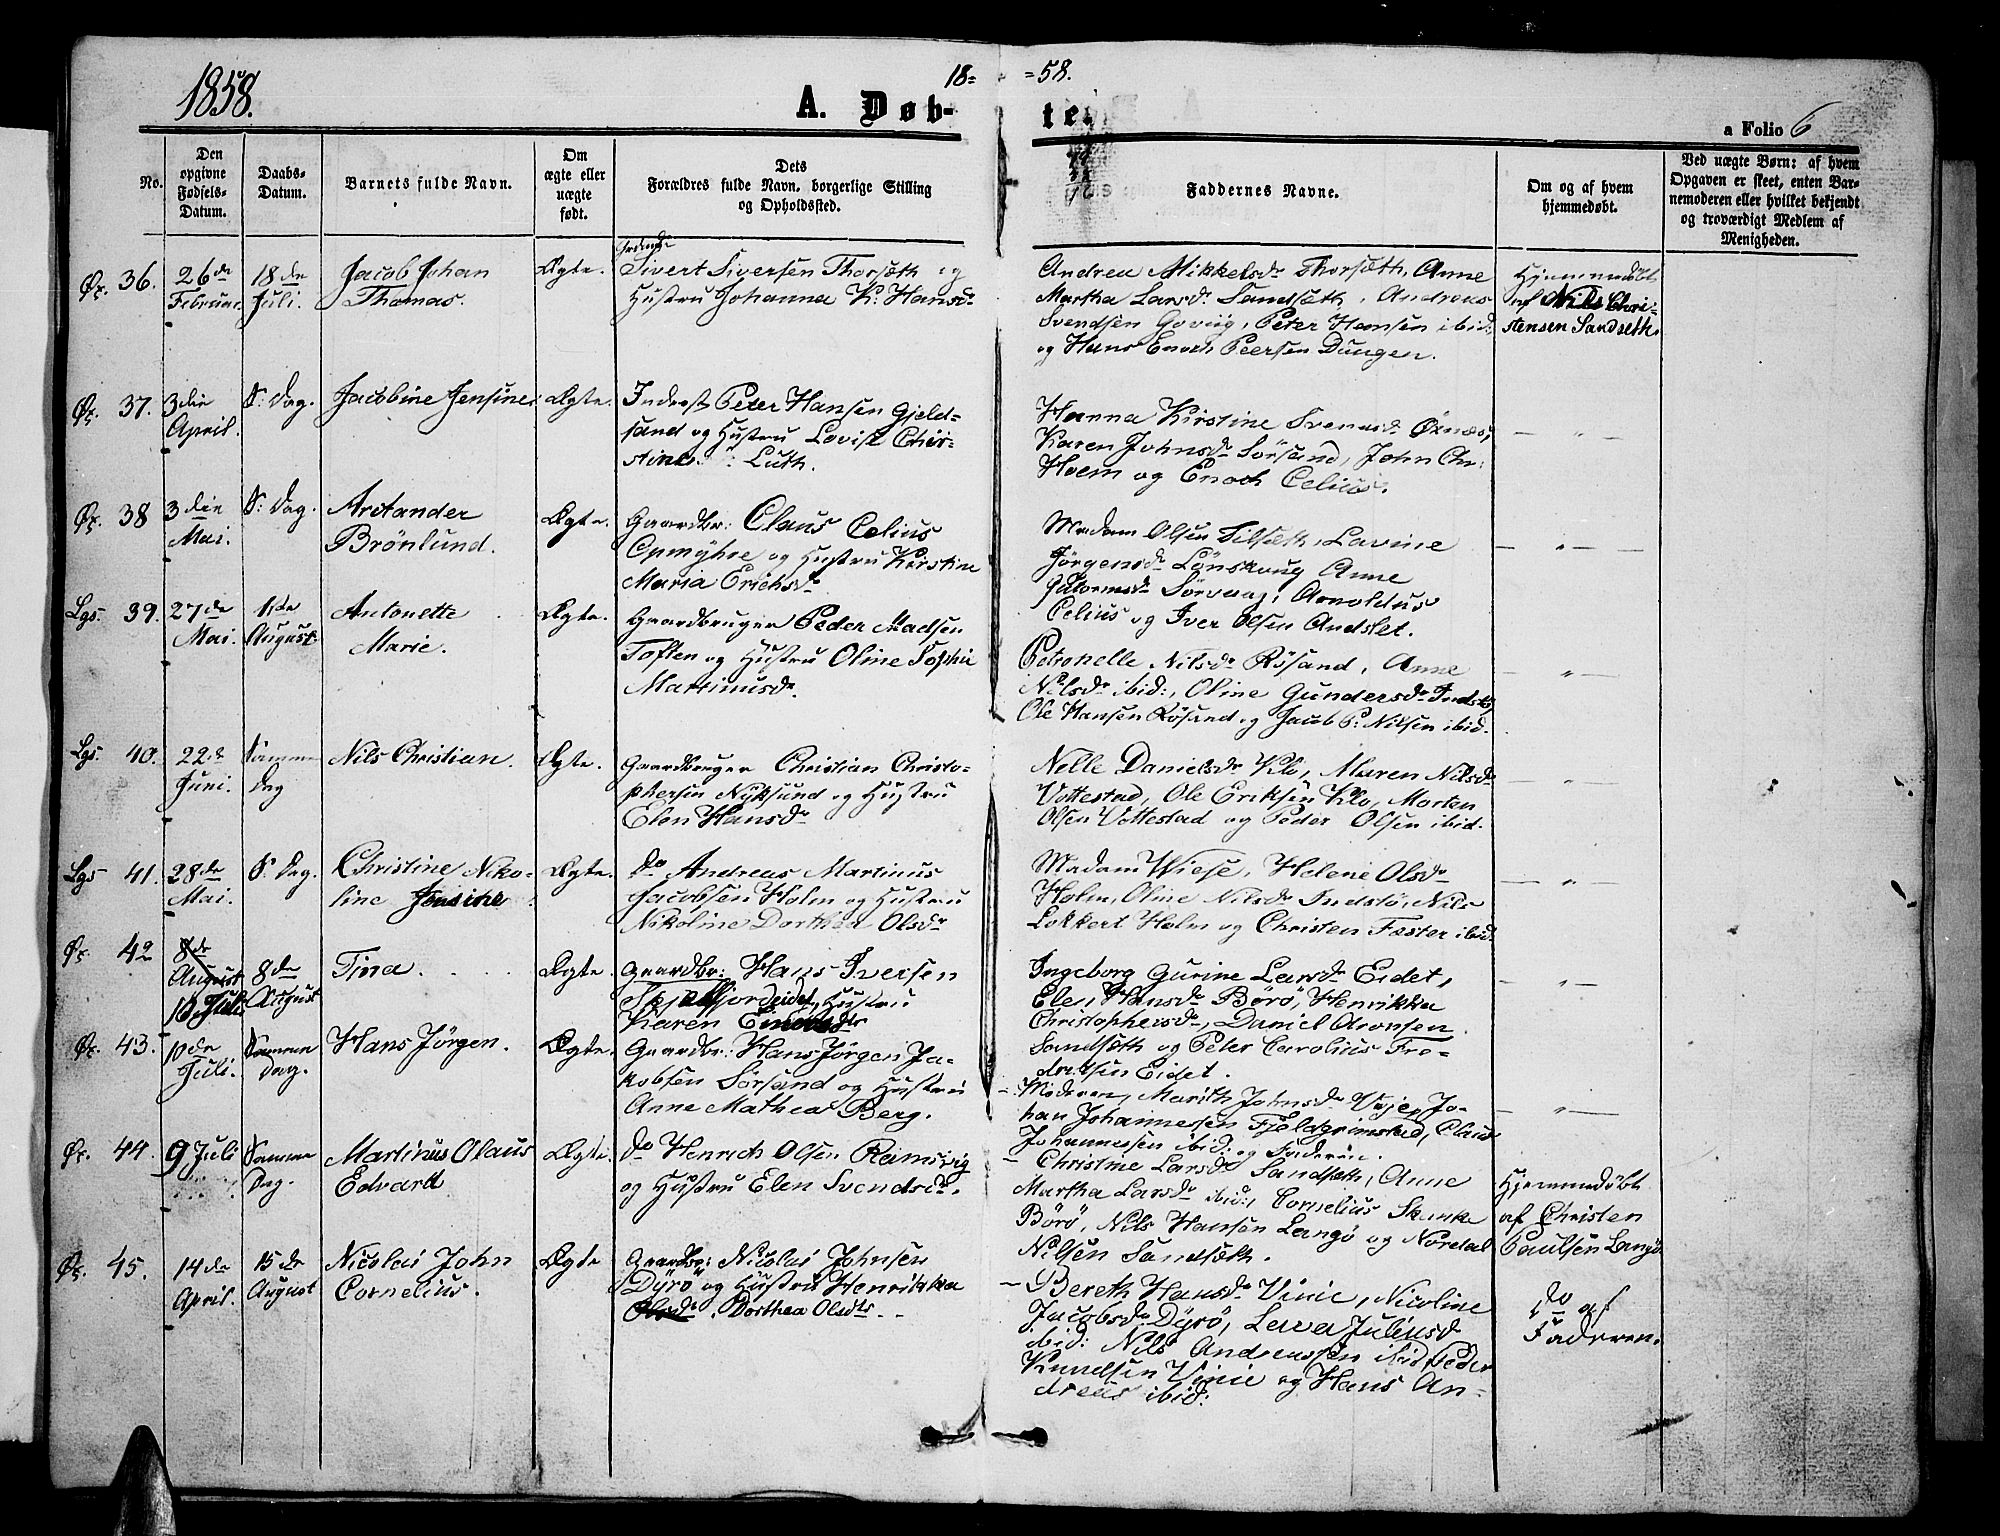 1858.
18=
=58.
A. Døb-
te.
a Folio 6
No.
Den opgivne Fødsels-Datum.
Daabs-Datum.
Barnets fulde Navn.
Om ægte eller uægte født.
Dets
Forældres fulde Navn, borgerlige Stilling
og Opholdssted.
Faddernes Navne.
Om og af hvem hjemmedøbt.
Ved uægte Børn: af hvem
Opgaven er skeet, enten Bar-
nemoderen eller hvilket bekjendt
og troværdigt Medlem af
Menigheden.
Øx. 36.
26de Februar.
18de Juli.
Jacob Johan
Thomas.
Ægte.
Sivert Siversen Thorsæth og
Hustru Johanna K. Hansdr
Andrea Mikkelsdr Thorsæth, Anne
Martha Larsdr Sandsæth, Andreas
Svendsen Goviig, Peter Hansen ibid:
og Hans Enoch Peersen Dungen.
Hjemmedøbt
af Nils Chri-
stensen Sandseth.
Øx. 37.
3die April.
S: Dag.
Jacobine Jensine.
Ægte.
Inderst Peter Hansen Gjeld-
sand og Hustru Lovise Chri-
stine Luth.
Hanna Kirstine Svendsdr Øxnæs,
Karen Johnsdr Sørsand, John Chr:
Hoem og Enoch Celius.
— " —
Øx. 38
3die Mai.
S: Dag.
Arctander
Brönlund.
Ægte.
Gaardbr: Claus Celius
Opmyhre og Hustru Kirstine
Maria Erichsdr
Madam Olsen Tilsæth, Lavine
Jørgensdr Lönskoug, Anne
Guttormsdr Sørvaag, Arnoldus
Celius og Iver Olsen Andslet.
— " —
Lgs. 39.
27de Mai.
1ste August.
Antonette
Marie.
Ægte.
Gaardbruger Peder Madsen
Toften og Hustru Oline Sophie
Martinusdr
Petronelle Nilsdr Røsand, Anne
Nilsdr ibid:, Oline Gundersdr Indstö,
Ole Hansen Røsand og Jacob P. Nilsen ibid.
— " —
Lgs. 40.
22de Juni.
Samme Dag
Nils Christian.
Ægte.
Gaardbruger Christian Christo-
phersen Nyksund og Hustru
Elen Hansdr
Nelle Danielsdr Klo, Maren Nilsdr
Vottestad, Ole Eriksen Klo, Morten
Olsen Vottestad og Peder Olsen ibid.
— " —
Lgs 41.
28de Mai.
S: Dag.
Christine Niko-
line Jensine
Ægte.
do Andreas Martinus
Jacobsen Holm og Hustru
Nikoline Dorthea Olsdr
Madam Wiese, Helene Olsdr
Holm, Oline Nilsdr Indstö, Nils
Lokkert Holm og Christen Fæster ibid.
— " —
Øx 42
8de August
13 Juli
8de August
Tina.
Ægte.
Gaardbr: Hans Iversen
Skjelfjordeidet, Hustru
Karen
Ingeborg Gurine Larsdr Eidet,
Elen Hansdr Börö, Henrikka
Christophersdr, Daniel Aronsen
Sandsæth og Peter Carolius Fre-
driksen Eidet.
— " —
Øx. 43.
10de Juli.
Samme Dag.
Hans Jörgen.
Ægte.
Gaardbr: Hans Jörgen Ja-
kobsen Sörsand og Hustru
Anne Mathea Berg.
Moderen, Marith Johnsdr Veje, Jo-
han Johannessen Fjeldgrimstad, Claus
Johannessen ibid: og Faderen.
— " —
Øx. 44.
9 Juli
Samme Dag.
Martinus Olaus
Edvard
Ægte.
do Henrich Olsen Ramsvig
og Hustru Elen Svendsdr.
Christine Larsdr Sandsæth, Anne
Martha Larsdr ibid:, Cornelius Skanke
Börö, Nils Hansen Langö og Nordal
Nilsen Sandsæth.
Hjemmedøbt
af Christen
Paulsen Langö
Øx. 45.
14de April.
15de August
Nicolai John
Cornelius.
Ægte
Gaardbr: Nicolai Johnsen
Dyrö og Hustru Henrikka
Olsdr. Dorthea Olsdtr.
Bereth Hansdr Vinie, Nicoline
Jacobsdr Dyrö, Lava Juliusdr
ibid: Nils Andreassen ibid, Peder
Knudsen Vinie og Hans An-
dreas ibid:
do af
Faderen.